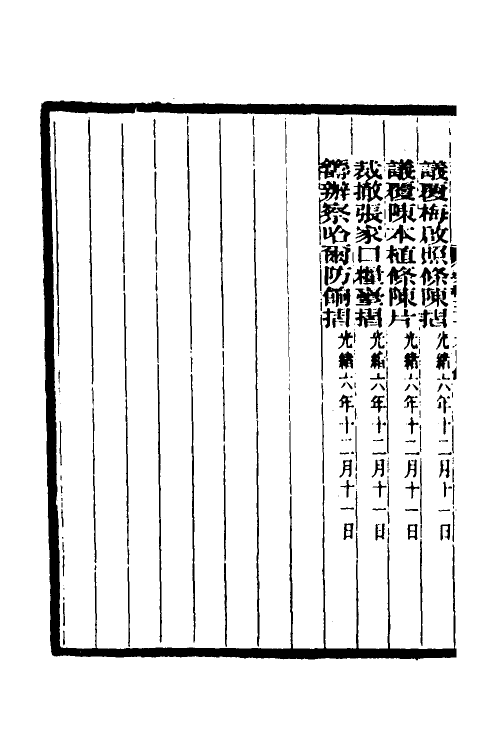 議覆梅啟照條陳摺光緒六年十二月十一日
議覆陳本植條陳片光緒六年十二月十一日
裁撤張家口糧臺摺光緒六年十二月十一日
籌辦察哈爾防餉摺光緒六年十二月十一日